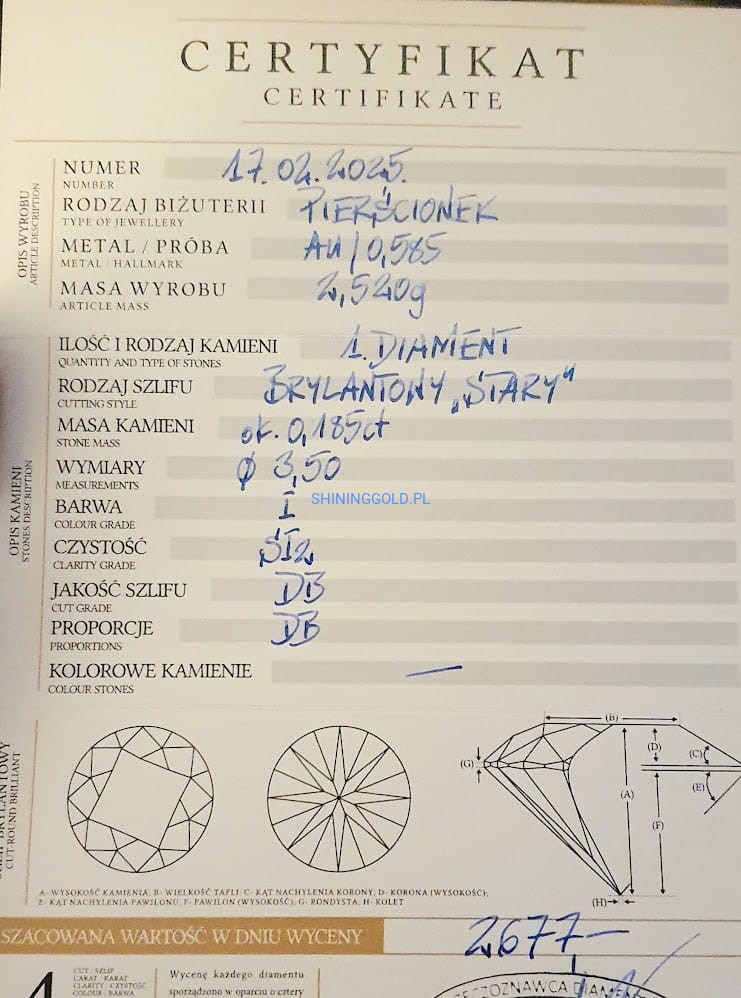 CERTYFIKAT
CERTIFIKATE
OPIS WYROBU
ARTICLE DESCRIPTION
NUMER 17.02.2025.
NUMBER
RODZAJ BIŻUTERII PIERŚCIONEK
TYPE OF JEWELLERY
METAL / PRÓBA AU/0,585
METAL / HALLMARK
MASA WYROBU 2,520g
ARTICLE MASS
OPIS KAMIENI
STONES DESCRIPTION
ILOŚĆ I RODZAJ KAMIENI 1. DIAMENT
QUANTITY AND TYPE OF STONES
RODZAJ SZLIFU BRYLANTOWY „STARY"
CUTTING STYLE
MASA KAMIENI ok. 0,185ct
STONE MASS
WYMIARY Ø 3,50
MEASUREMENTS
SHININGGOLD.PL
BARWA I
COLOUR GRADE
CZYSTOŚĆ SI2
CLARITY GRADE
JAKOŚĆ SZLIFU DB
CUT GRADE
PROPORCJE DB
PROPORTIONS
KOLOROWE KAMIENIE —
COLOUR STONES
BRYLANTOWY
CUT-ROUND BRILLIANT
(B)
(D)
(C)
(G)
(A)
(E)
(F)
(H)
A- WYSOKOŚĆ KAMIENIA; B- WIELKOŚĆ TAFLI; C- KĄT NACHYLENIA KORONY; D- KORONA (WYSOKOŚĆ);
E- KĄT NACHYLENIA PAWILONU; F- PAWILON (WYSOKOŚĆ); G- RONDYSTA; H- KOLET
SZACOWANA WARTOŚĆ W DNIU WYCENY 2677—
4
CUT / SZLIF
CARAT / KARAT
CLARITY / CZYSTOŚĆ
COLOUR / BARWA
Wycenę każdego diamentu
sporządzono w oparciu o cztery
RZECZOZNAWCA